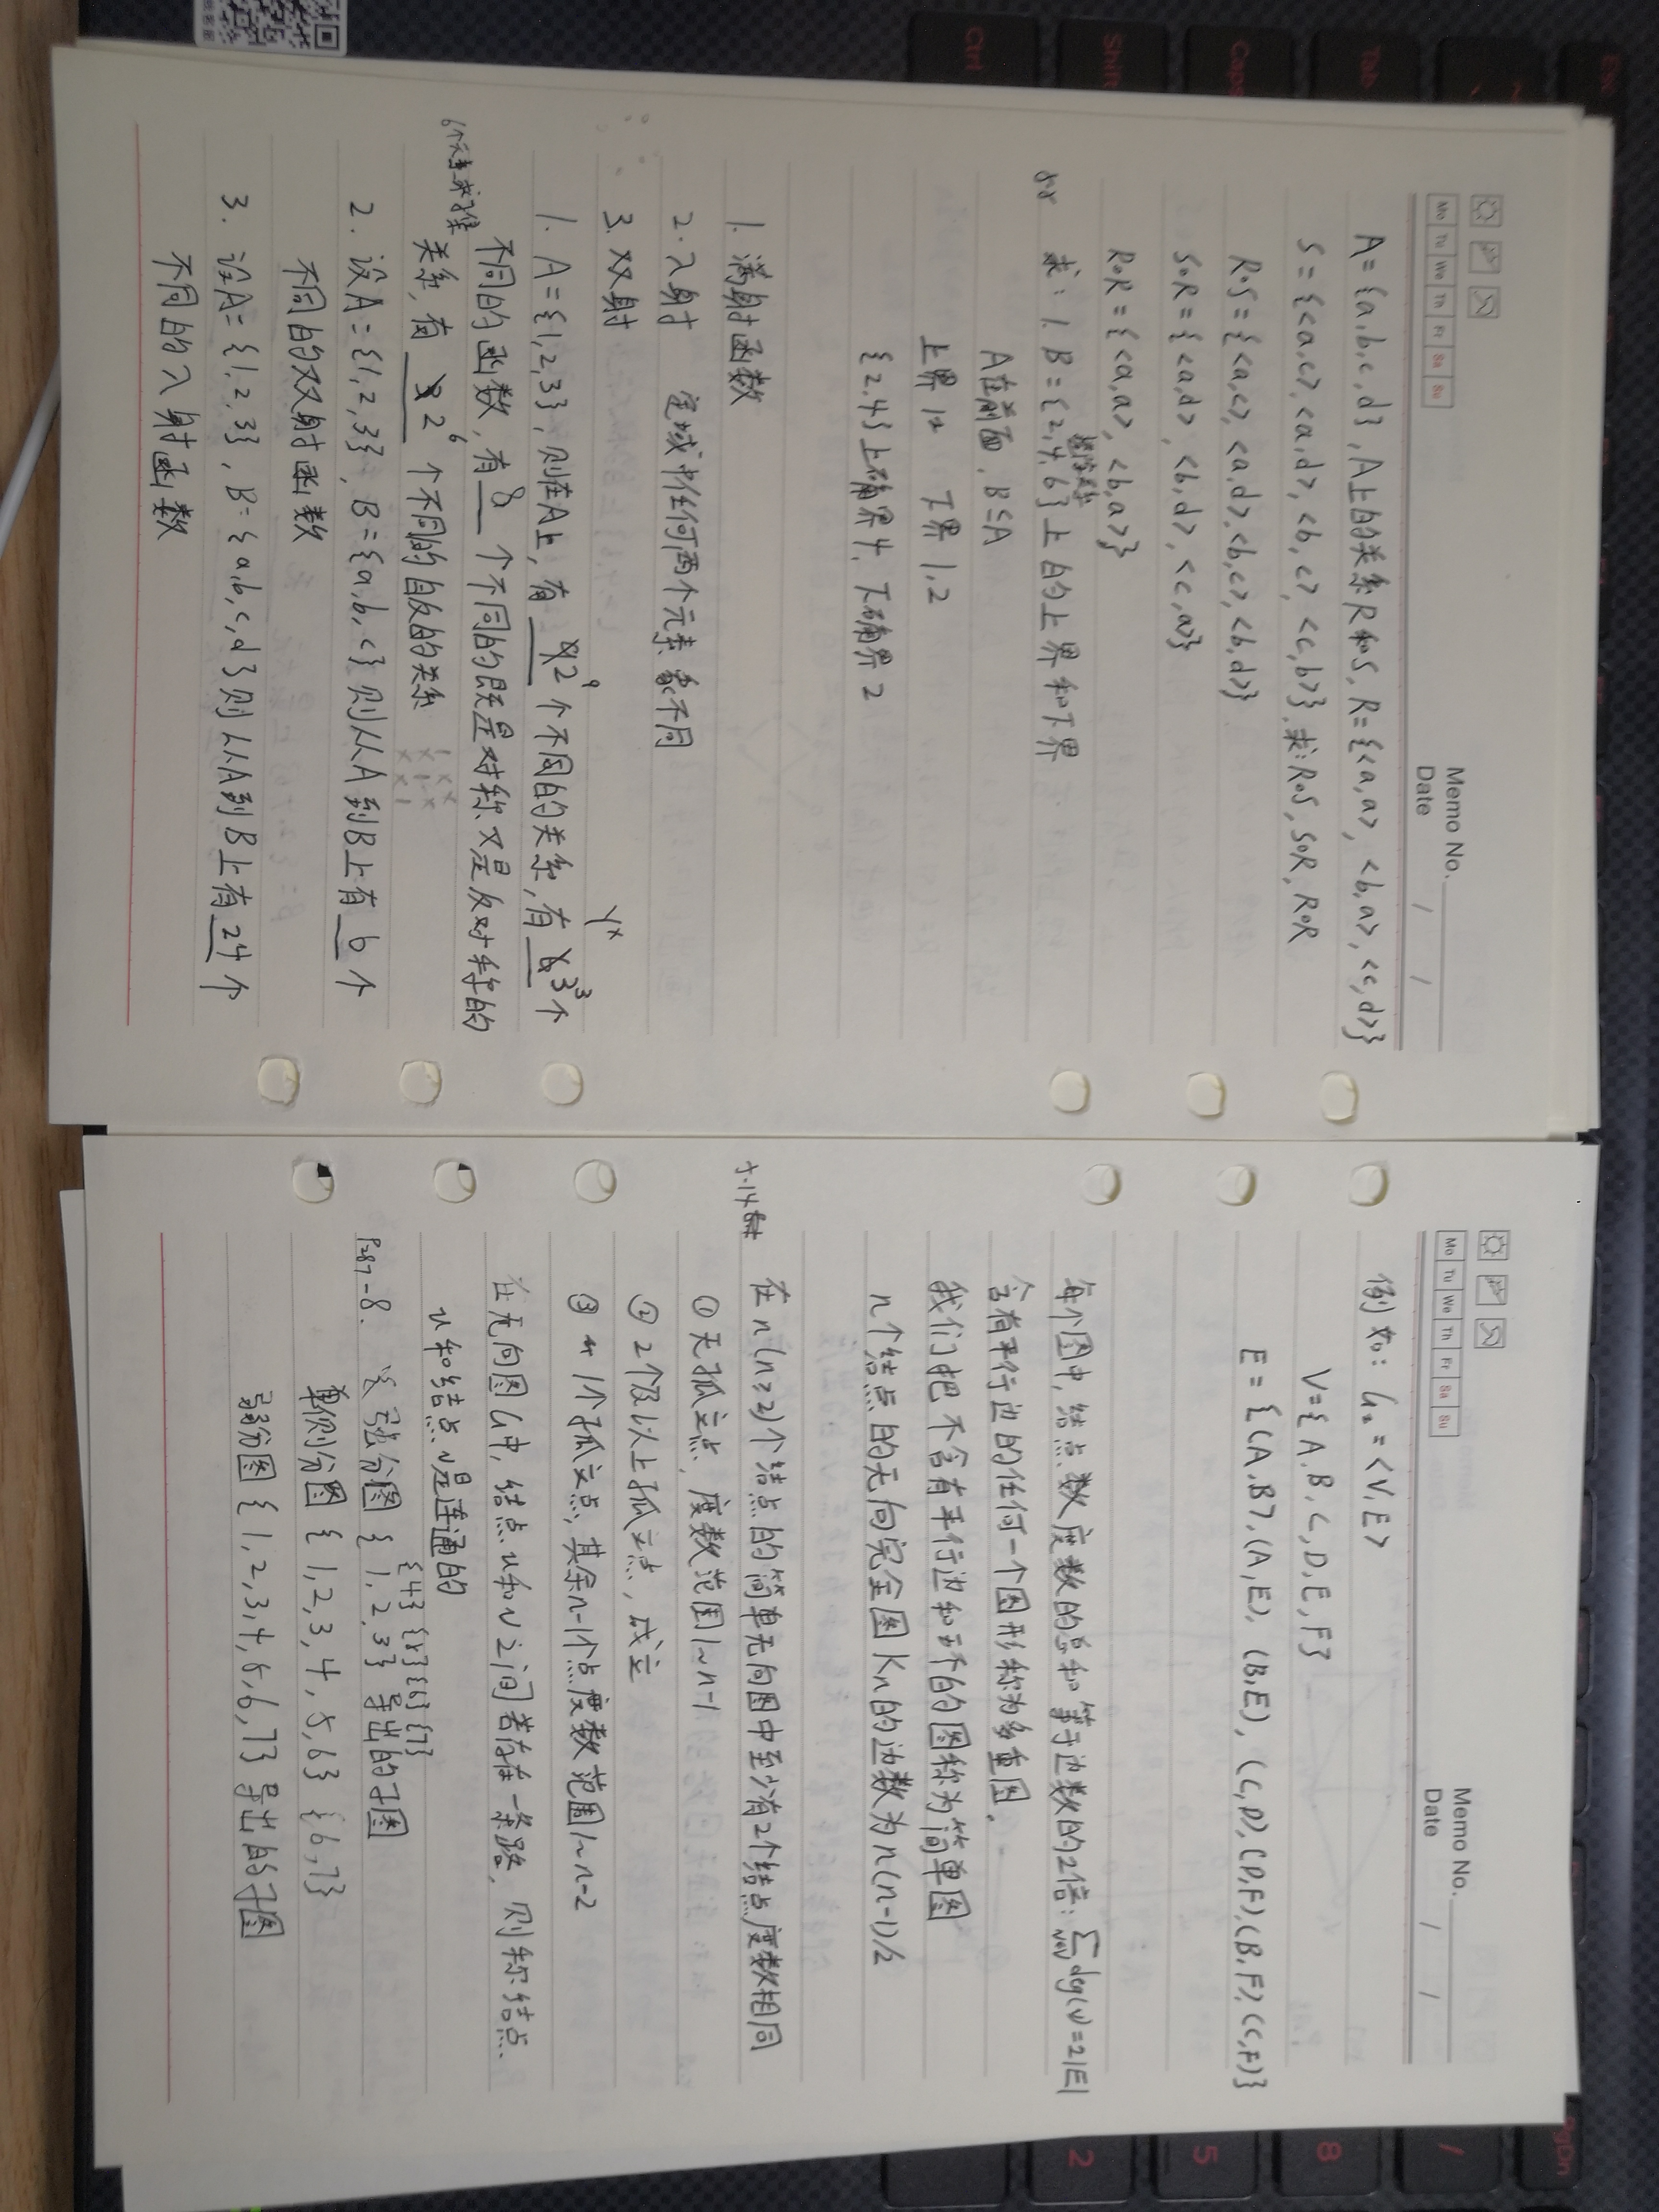 Mo Tu We Th Fr Sa Su
Memo No.
Date / /
A={a,b,c,d},A上的关系R和S,R={<a,a>,<b,a>,<c,d>}
S={<a,c>,<a,d>,<b,c>,<c,b>},求:R∘S,S∘R,R∘R
R∘S={<a,c>,<a,d>,<b,c>,<b,d>}
S∘R={<a,d>,<b,d>,<c,a>}
R∘R={<a,a>,<b,a>}
整除关系
求:1.B={2,4,6}上的上界和下界
A在前面,B≤A
上界12 下界1,2
{2,4}上确界4,下确界2
1.满射函数
2.入射 定域中任何两个元素象不同
3.双射
Yˣ
1.A={1,2,3},则在A上,有2⁹个不同的关系,有3³个
不同的函数,有8个不同的既是对称又是反对称的
6个元素求子集
关系,有2⁶个不同的自反的关系
1 x x
x 1 x
x x 1
2.设A={1,2,3},B={a,b,c}则从A到B上有6个
不同的双射函数
3.设A={1,2,3},B={a,b,c,d}则从A到B上有24个
不同的入射函数
Mo Tu We Th Fr Sa Su
Memo No.
Date / /
例如:G₂=<V,E>
V={A,B,C,D,E,F}
E={(A,B),(A,E),(B,E),(C,D),(D,F),(B,F),(C,F)}
每个图中,结点数度数的总和等于边数的2倍:∑deg(v)=2|E|
v∈V
含有平行边的任何一个图形称为多重图.
我们把不含有平行边和环的图称为简单图
n个结点的无向完全图Kn的边数为n(n-1)/2
5.14
在n(n≥2)个结点的简单无向图中至少有2个结点度数相同
①无孤立点,度数范围1~n-1
②2个及以上孤立点,成立
③1个孤立点,其余n-1个点度数范围1~n-2
在无向图G中,结点u和v之间若存在一条路,则称结点
u和结点v是连通的
{4} {5} {6} {7}
P287-8. 强分图{1,2,3}导出的子图
单侧分图{1,2,3,4,5,6} {6,7}
弱分图{1,2,3,4,5,6,7}导出的子图
Esc
Tab
Caps
Shift
Ctrl
PgDn
/
8
5
2